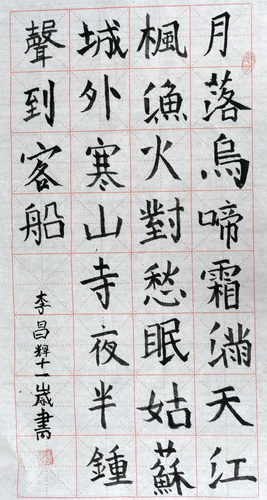 月落烏啼霜滿天江
楓漁火對愁眠姑蘇
城外寒山寺夜半鍾
聲到客船
李昌輝十一歲書